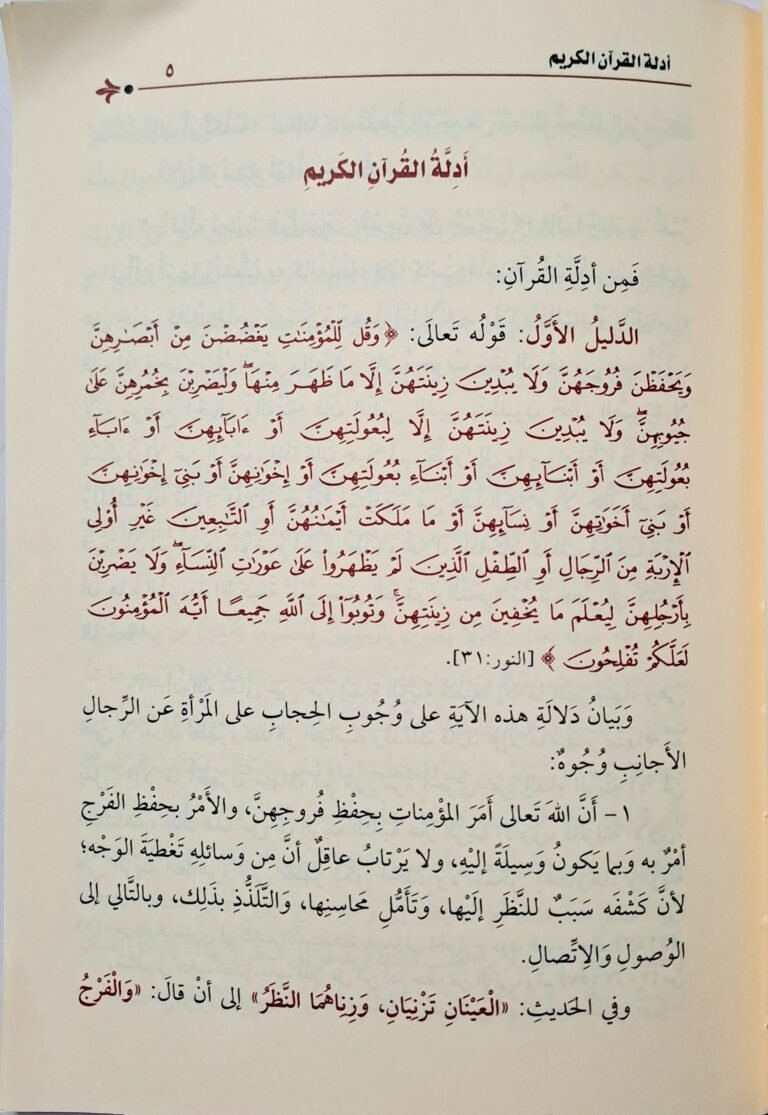 أدلة القرآن الكريم ٥
أَدِلَّةُ القُرآنِ الكَرِيمِ
فَمِن أدِلَّةِ القُرآنِ:
الدَّليلُ الأَوَّلُ: قَوْلُه تَعالَى: ﴿وَقُل لِّلْمُؤْمِنَٰتِ يَغْضُضْنَ مِنْ أَبْصَٰرِهِنَّ
وَيَحْفَظْنَ فُرُوجَهُنَّ وَلَا يُبْدِينَ زِينَتَهُنَّ إِلَّا مَا ظَهَرَ مِنْهَا ۖ وَلْيَضْرِبْنَ بِخُمُرِهِنَّ عَلَىٰ
جُيُوبِهِنَّ ۖ وَلَا يُبْدِينَ زِينَتَهُنَّ إِلَّا لِبُعُولَتِهِنَّ أَوْ ءَابَآئِهِنَّ أَوْ ءَابَآءِ
بُعُولَتِهِنَّ أَوْ أَبْنَآئِهِنَّ أَوْ أَبْنَآءِ بُعُولَتِهِنَّ أَوْ إِخْوَٰنِهِنَّ أَوْ بَنِىٓ إِخْوَٰنِهِنَّ
أَوْ بَنِىٓ أَخَوَٰتِهِنَّ أَوْ نِسَآئِهِنَّ أَوْ مَا مَلَكَتْ أَيْمَٰنُهُنَّ أَوِ ٱلتَّٰبِعِينَ غَيْرِ أُوْلِى
ٱلْإِرْبَةِ مِنَ ٱلرِّجَالِ أَوِ ٱلطِّفْلِ ٱلَّذِينَ لَمْ يَظْهَرُوا۟ عَلَىٰ عَوْرَٰتِ ٱلنِّسَآءِ ۖ وَلَا يَضْرِبْنَ
بِأَرْجُلِهِنَّ لِيُعْلَمَ مَا يُخْفِينَ مِن زِينَتِهِنَّ ۚ وَتُوبُوٓا۟ إِلَى ٱللَّهِ جَمِيعًا أَيُّهَ ٱلْمُؤْمِنُونَ
لَعَلَّكُمْ تُفْلِحُونَ﴾ [النور:٣١].
وَبَيانُ دَلالَةِ هذه الآيَةِ على وُجُوبِ الحِجابِ على المَرْأةِ عَن الرِّجالِ
الأَجانِبِ وُجُوهٌ:
١- أنَّ اللهَ تَعالى أمَرَ المؤْمِناتِ بِحِفْظِ فُروجِهِنَّ، والأَمْرُ بحِفْظِ الفَرْجِ
أمْرٌ به وَبما يَكونُ وَسِيلَةً إليْهِ، ولا يَرْتابُ عاقِلٌ أنَّ مِن وَسائلِهِ تَغْطيَةَ الوَجْه؛
لأنَّ كَشْفَه سَبَبٌ للنَّظَرِ إلَيْها، وَتَأَمُّلِ مَحاسِنِها، وَالتَّلَذُّذِ بذَلِك، وبالتَّالي إلى
الوُصولِ وَالِاتِّصالِ.
وفي الحَديثِ: «الْعَيْنَانِ تَزْنِيَانِ، وَزِناهُمَا النَّظَرُ» إلى أنْ قالَ: «وَالْفَرْجُ